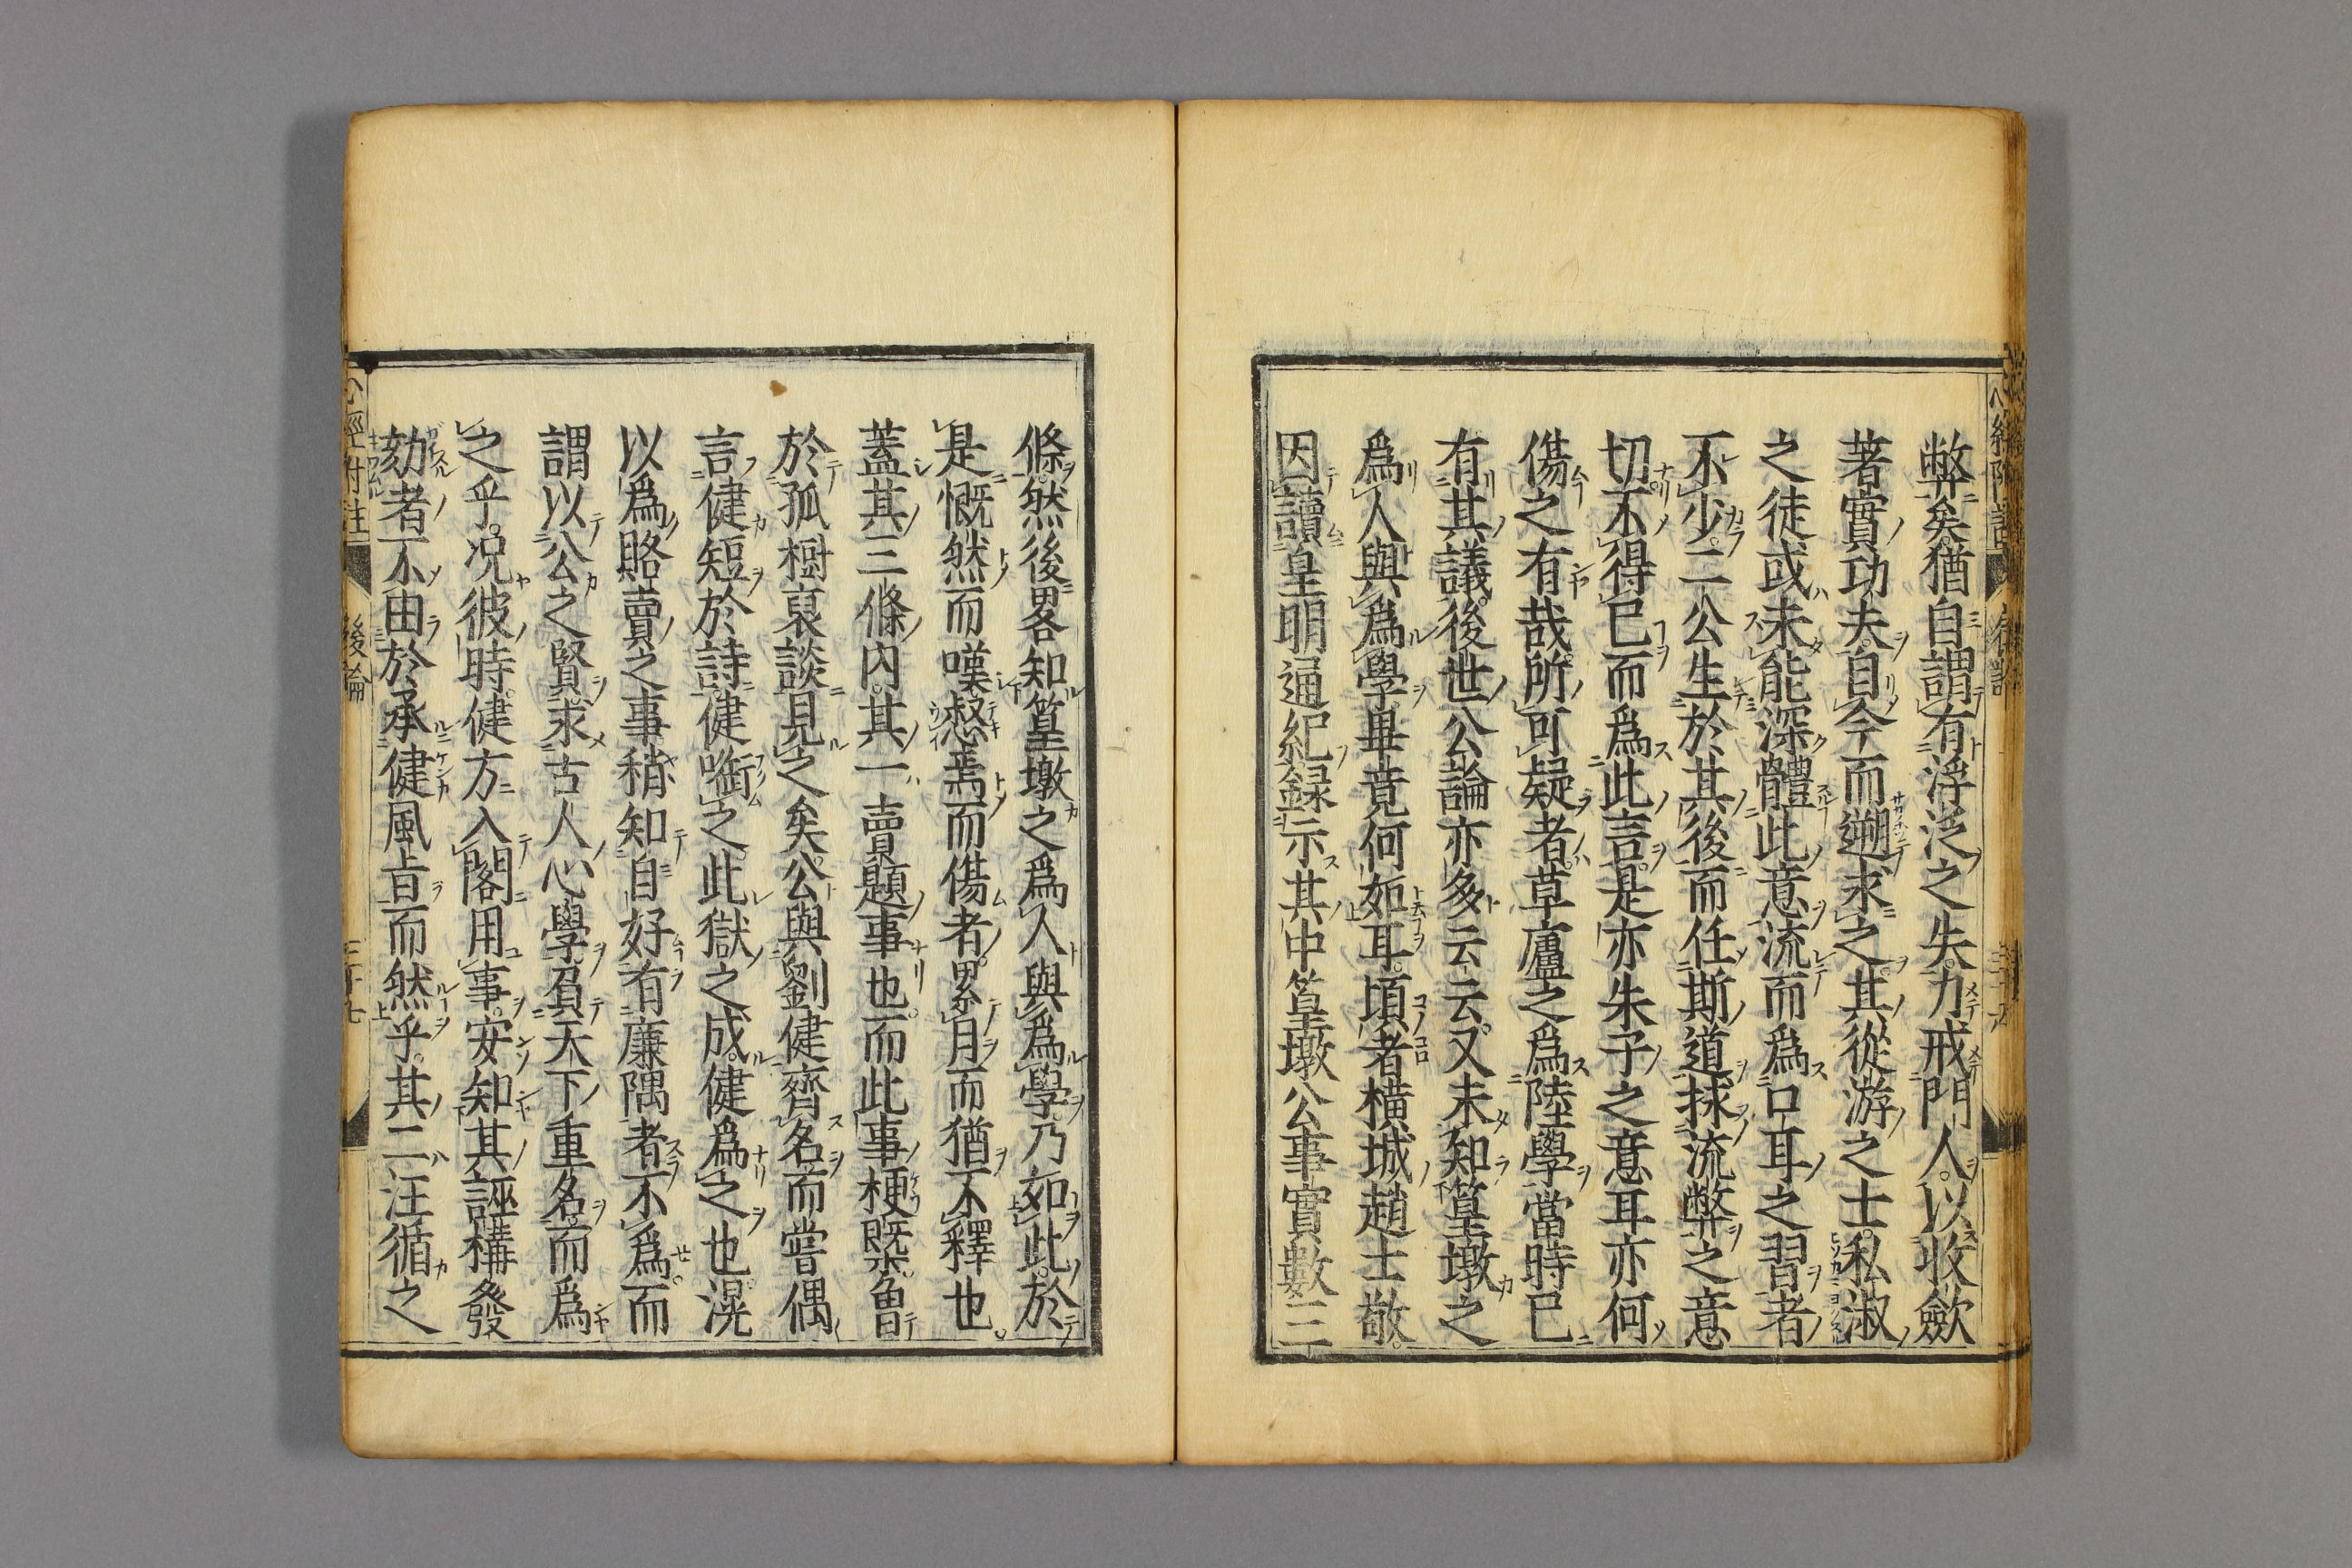 弊矣。猶自謂有浮泛之失。力戒門人。以收斂
著實功夫。自今而遡求之。其從游之士。私淑
之徒。或未能深體此意。流而爲口耳之習者
不少。二公生於其後。而任斯道。捄流弊之意
切。不得已而爲此言。是亦朱子之意耳。亦何
傷之有哉。所可疑者。草廬之爲陸學。當時已
有其議。後世公論亦多云云。又未知篁墩之
爲人與爲學。畢竟何如耳。頃者橫城趙士敬。
因讀皇明通紀。録示其中篁墩公事實數三
條。然後畧知篁墩之爲人與爲學。乃如此。於
是慨然而嘆。愸焉而傷者。累月而猶不釋也。
蓋其三條內。其一賣題事也。而此事梗槩。魯
於孤樹裒談見之矣。公與劉健齊名。而嘗偶
言健短於詩。健啣之。此獄之成。健爲之也。滉
以爲賂賣之事。稍知自好有廉隅者不爲。而
謂以公之賢。求古人心學。負天下重名。而爲
之乎。况彼時。健方入閣用事。安知其誣構發
劾者。不由於承健風旨而然乎。其二。汪循之
心經附註
後論
三十七